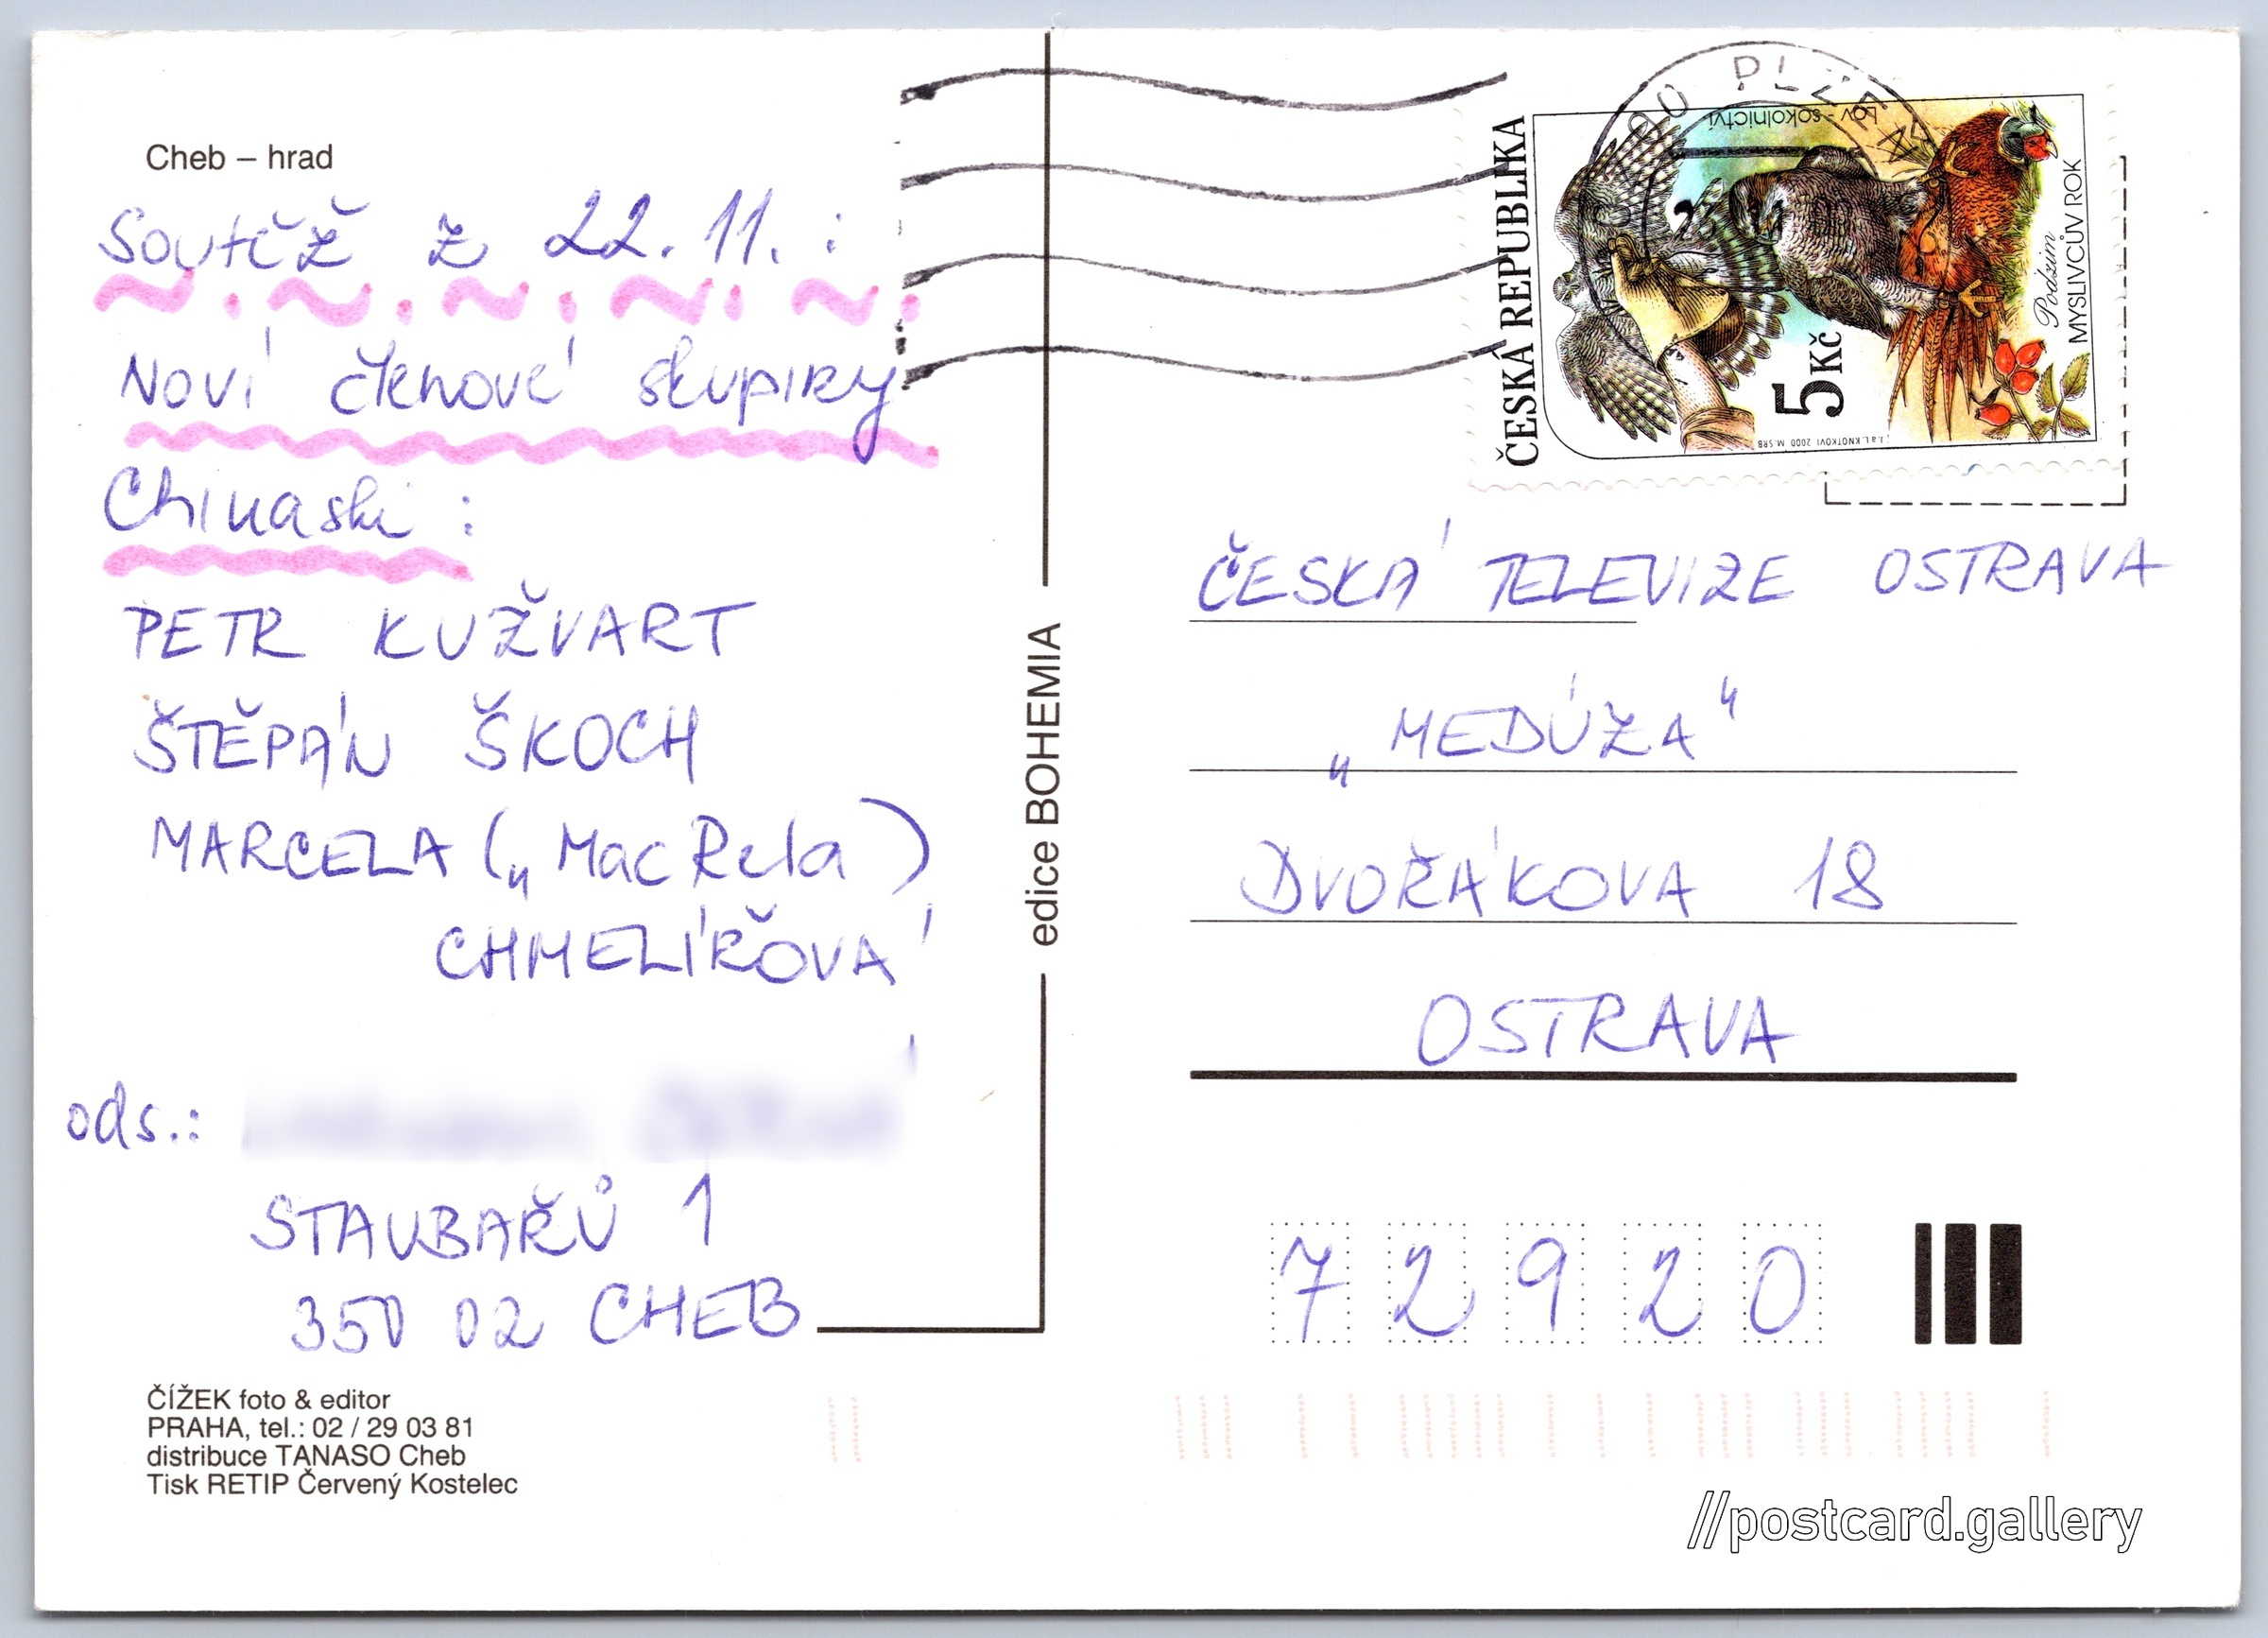 Cheb – hrad
Soutěž z 22.11.:
Noví členové skupiny
Chinaski:
PETR KUŽVART
ŠTĚPÁN ŠKOCH
MARCELA („MacRela)
CHMELÍŘOVÁ
ods.:
STAVBAŘŮ 1
350 02 CHEB
ČÍŽEK foto & editor
PRAHA, tel.: 02 / 29 03 81
distribuce TANASO Cheb
Tisk RETIP Červený Kostelec
edice BOHEMIA
PLZE
ČESKÁ REPUBLIKA
Lov - sokolnictví
5 Kč
Podzim
MYSLIVCŮV ROK
J. a L. KNOTKOVI 2000 M. SRB
ČESKÁ TELEVIZE OSTRAVA
„MEDÚZA“
DVOŘÁKOVA 18
OSTRAVA
72920
//postcard.gallery